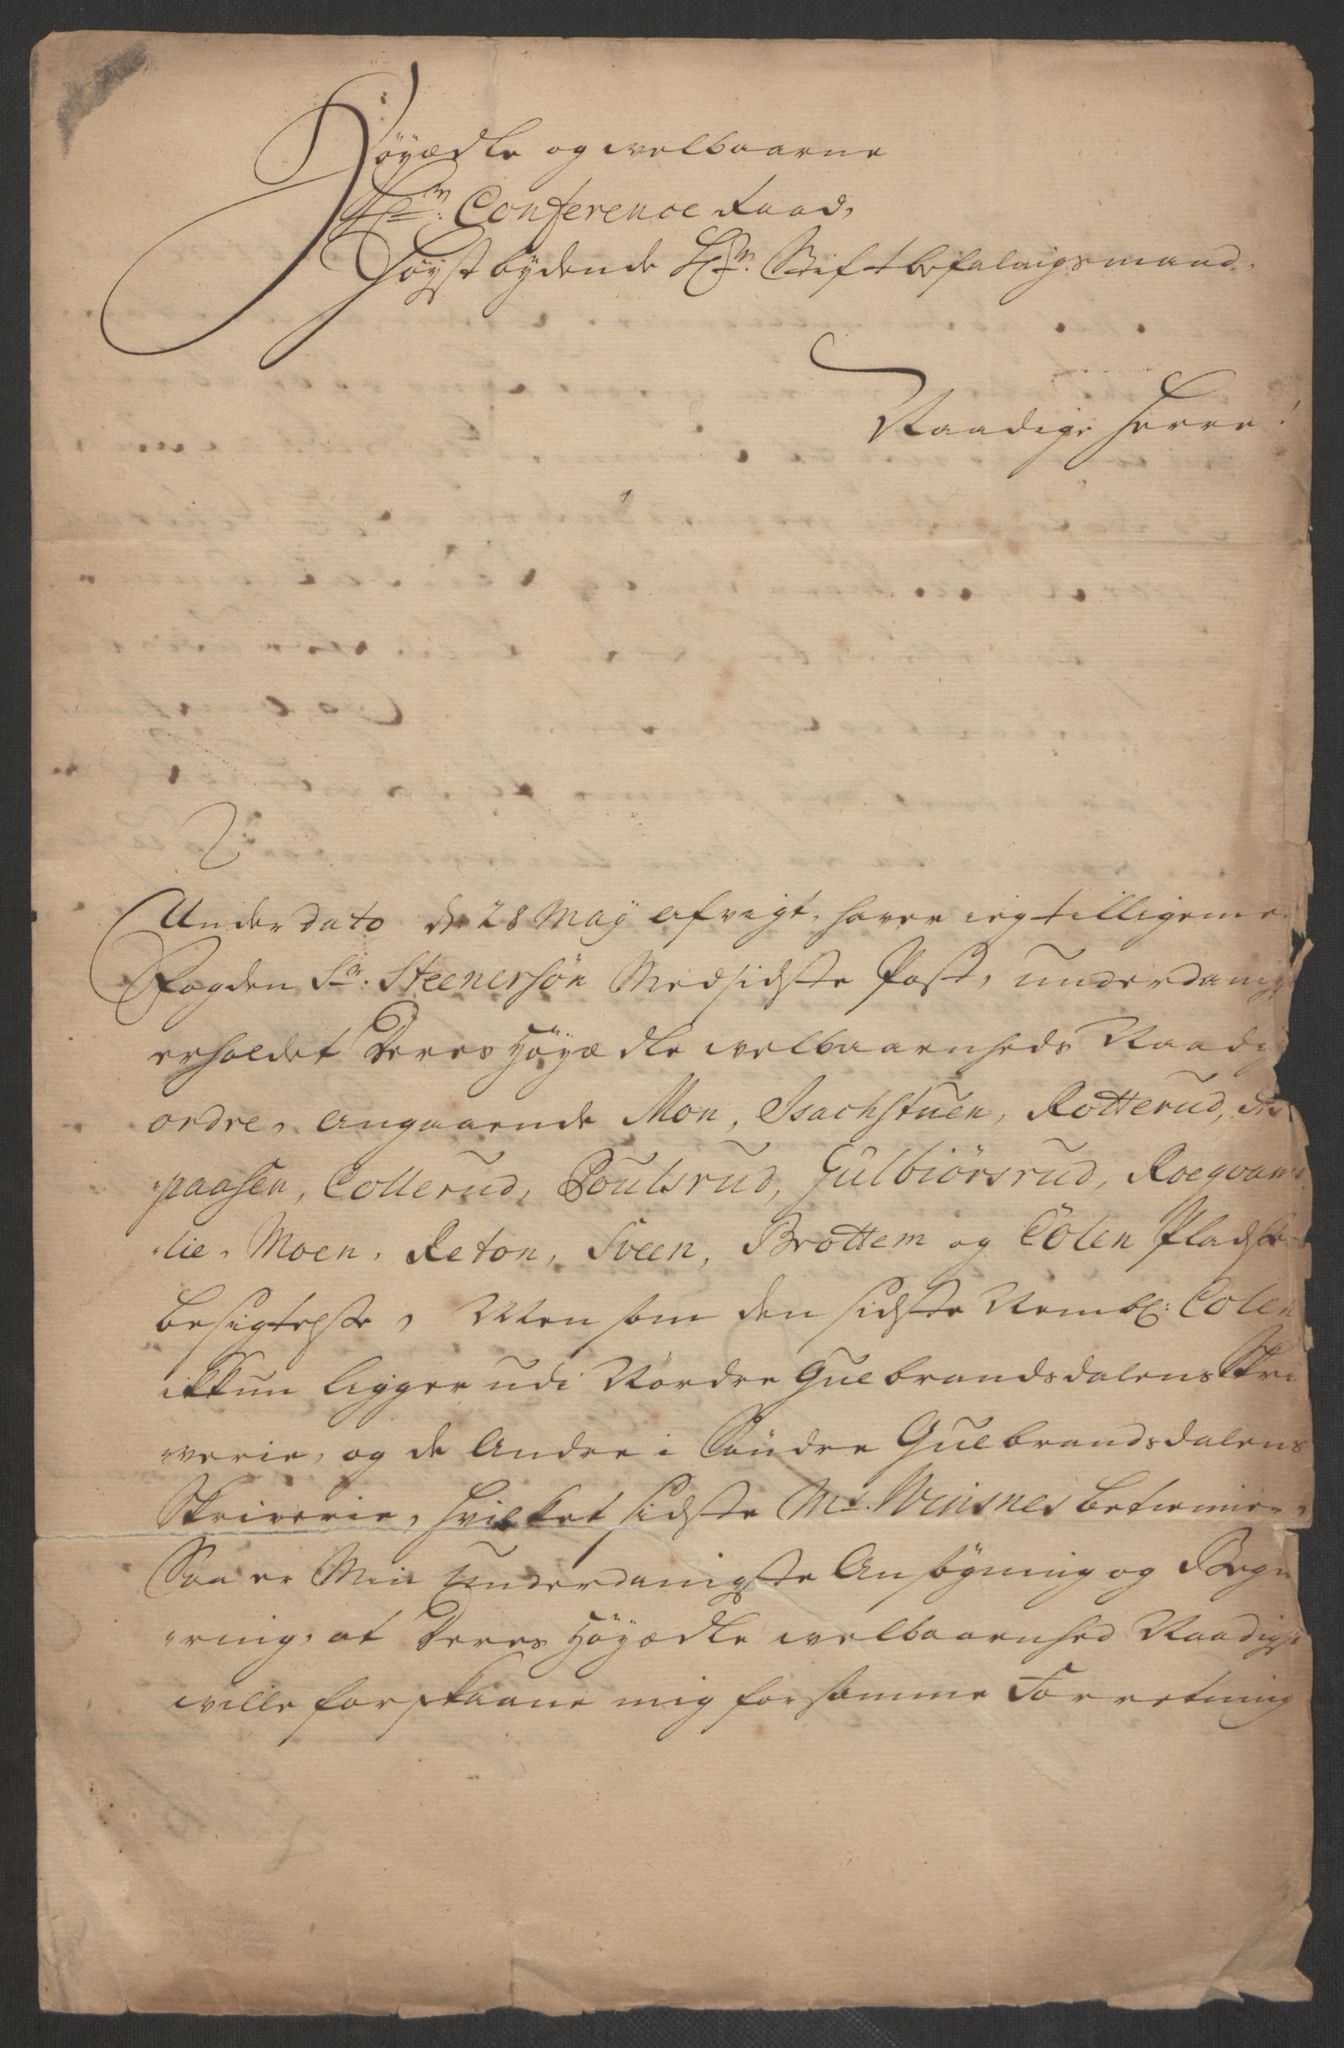 Høyædle og welbaarne
Hr: Conference Raad,
Høystbydende Hr. Stiftbefalingsmand,
Naadige Herre!
Under dato d. 28 Maÿ afvigt, haver ieg tilligeme
Fogden Sr. Steenersøn Medsidste Post, underdanigst
erholdet Deres Høyædle welbaarenheds Naadig
ordre, angaaende Mon, Isachstuen, Rotterud,
paasen, Collerud, Poulsrud, Gulbiörsrud, Roeqvam
lie, Moen, Reton, Sveen, Brottem og Cölen Pladse
besigtelse, Men som den sidste Nembl: Colen
ikkun ligger udi Nordre Gulbrandsdalens Skri
verie, og de Andre i Söndre Gulbrandsdalens
Skriverie, hvilket sidste Mr. Winsnes betienner,
Saa er Min underdanigste Ansøgning og Begie
ring, at Deres Høyædle welbaarenhed Naadigst
wille forskaane mig for samme Forretning